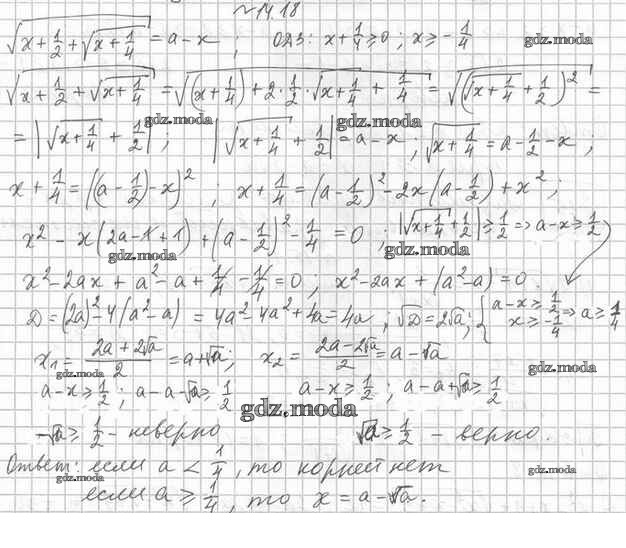 №14.18
√(x + 1/2 + √(x + 1/4)) = a - x ; ОДЗ: x + 1/4 ≥ 0 ; x ≥ -1/4
gdz.moda
√(x + 1/2 + √(x + 1/4)) = √((x + 1/4) + 2·1/2·√(x + 1/4) + 1/4) = √((√(x + 1/4) + 1/2)²) =
gdz.moda gdz.moda
= |√(x + 1/4) + 1/2| ; |√(x + 1/4) + 1/2| = a - x ; √(x + 1/4) = a - 1/2 - x ;
x + 1/4 = ((a - 1/2) - x)² ; x + 1/4 = (a - 1/2)² - 2x(a - 1/2) + x² ;
x² - x(2a - 1 + 1) + (a - 1/2)² - 1/4 = 0 ; |√(x + 1/4) + 1/2| ≥ 1/2 => a - x ≥ 1/2
gdz.moda gdz.moda
x² - 2ax + a² - a + 1/4 - 1/4 = 0 , x² - 2ax + (a² - a) = 0 .
D = (2a)² - 4(a² - a) = 4a² - 4a² + 4a = 4a ; √D = 2√a ; { a - x ≥ 1/2 x ≥ -1/4 => a ≥ 1/4
gdz.moda
x₁ = (2a + 2√a)/2 = a + √a ; x₂ = (2a - 2√a)/2 = a - √a
gdz.moda gdz.moda
a - x ≥ 1/2 ; a - a - √a ≥ 1/2 a - x ≥ 1/2 ; a - a + √a ≥ 1/2
gdz.moda
-√a ≥ 1/2 - неверно √a ≥ 1/2 - верно.
Ответ: если a < 1/4 , то корней нет
gdz.moda gdz.moda
если a ≥ 1/4 , то x = a - √a .